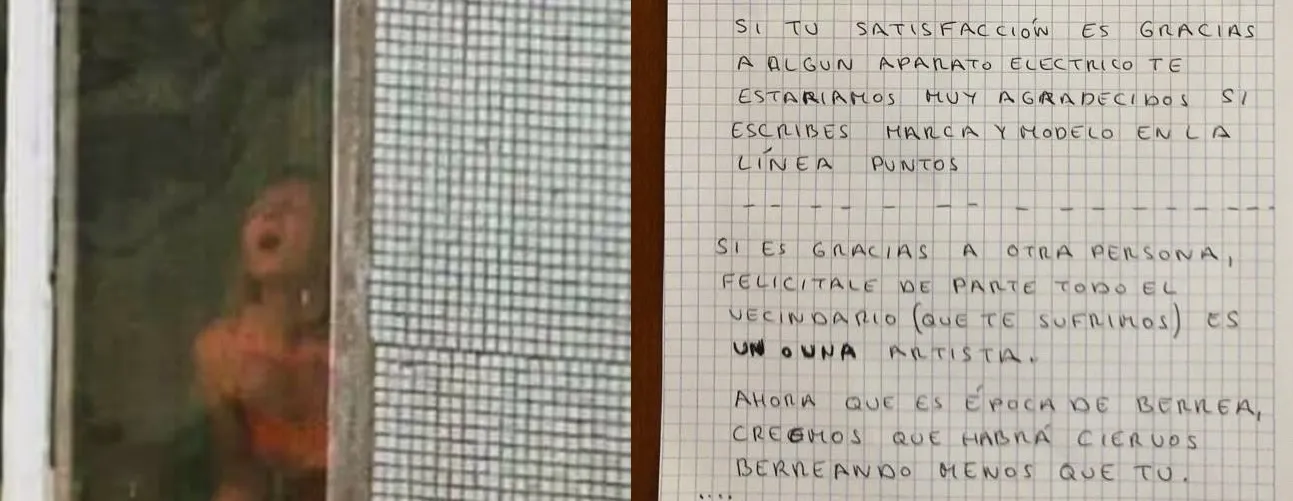 SI TU SATISFACCIÓN ES GRACIAS
A ALGUN APARATO ELECTRICO TE
ESTARIAMOS MUY AGRADECIDOS SI
ESCRIBES MARCA Y MODELO EN LA
LÍNEA PUNTOS
SI ES GRACIAS A OTRA PERSONA,
FELICITALE DE PARTE TODO EL
VECINDARIO (QUE TE SUFRIMOS) ES
UN O UNA ARTISTA.
AHORA QUE ES ÉPOCA DE BERREA,
CREEMOS QUE HABRÁ CIERVOS
BERREANDO MENOS QUE TU.
....